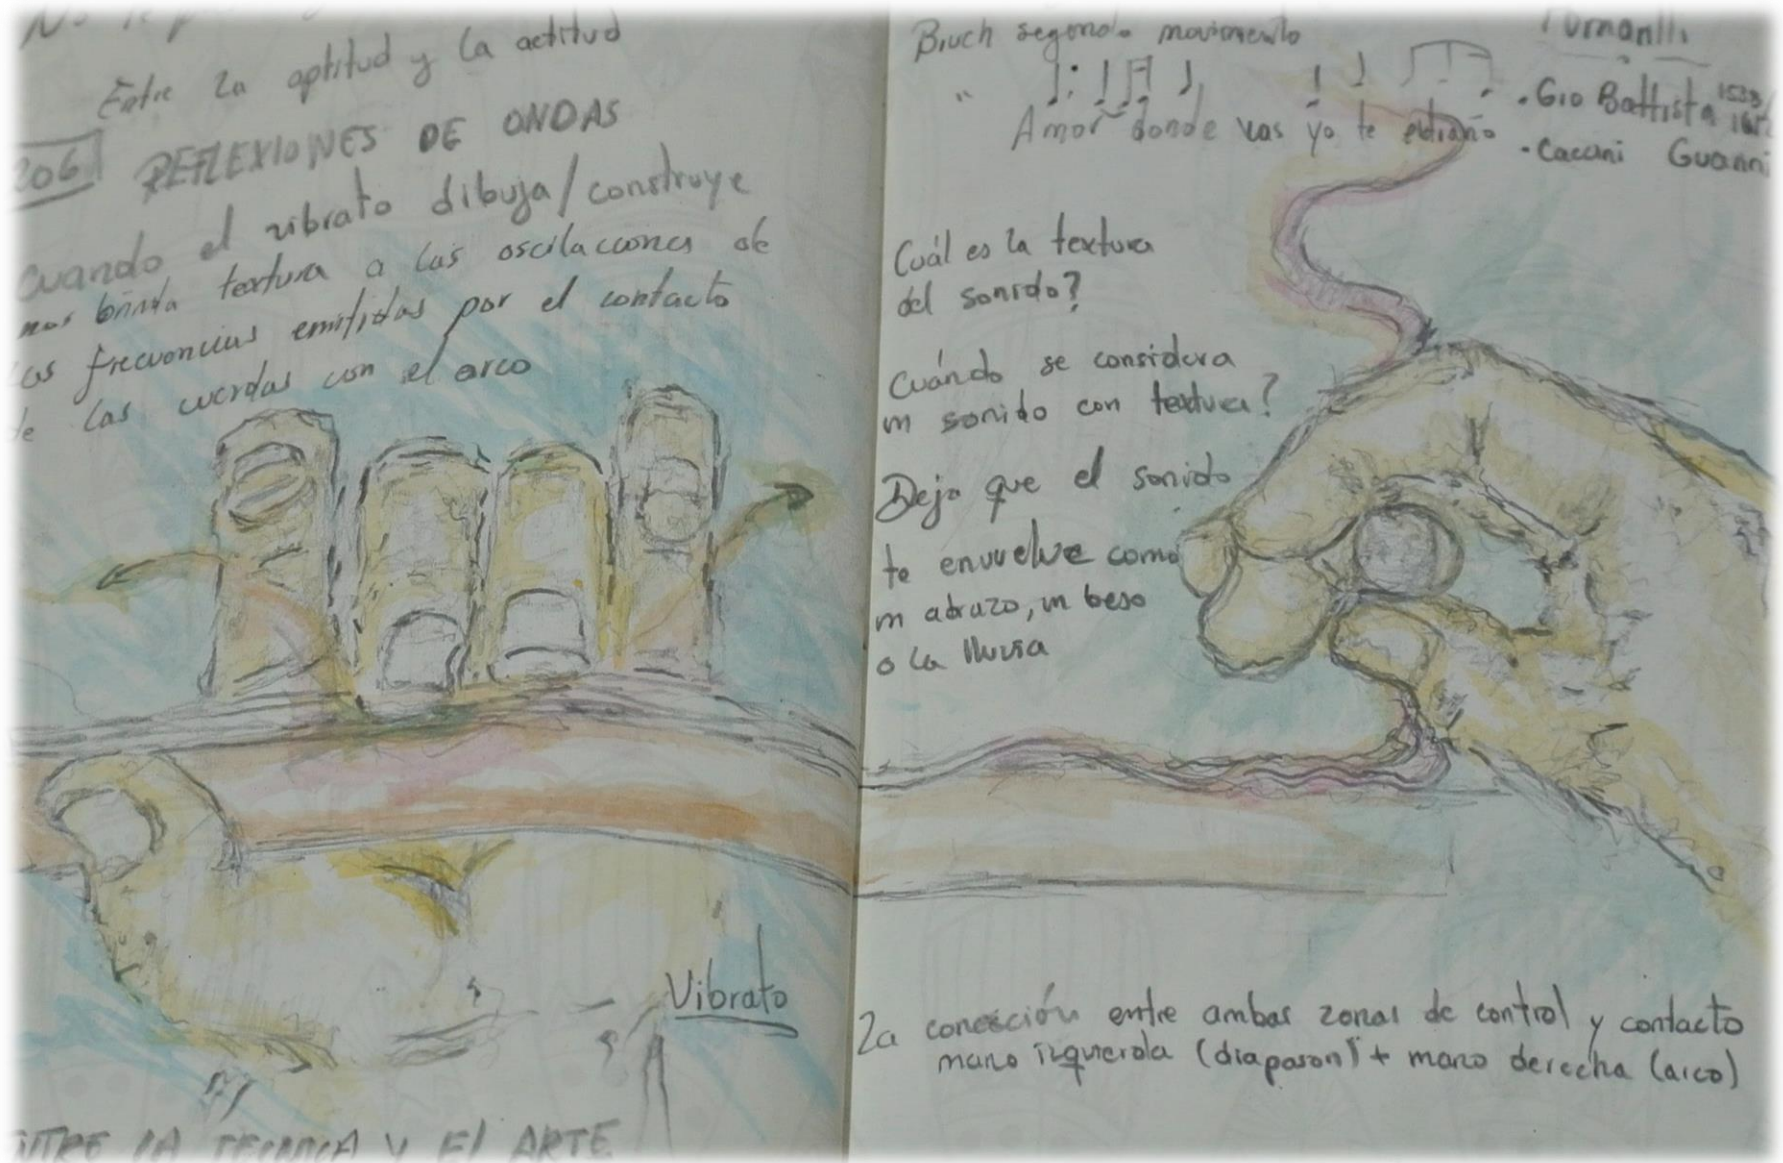 No te
Entre la aptitud y la actitud
206 REFLEXIONES DE ONDAS
Cuando el vibrato dibuja/construye
nos brinda textura a las oscilaciones de
las frecuencias emitidas por el contacto
de las cuerdas con el arco
Vibrato
ENTRE LA TECNICA Y El ARTE
Bruch segundo movimento
" Amor donde vas yo te extraño
Fornanlli
. Gio Battista 1533
. Caccini Guanni
Cuál es la textura
del sonido?
Cuándo se considera
un sonido con textura?
Deja que el sonido
te envuelve como
un abrazo, un beso
o la lluvia
La conección entre ambas zonas de control y contacto
mano izquierda (diapason) + mano derecha (arco)